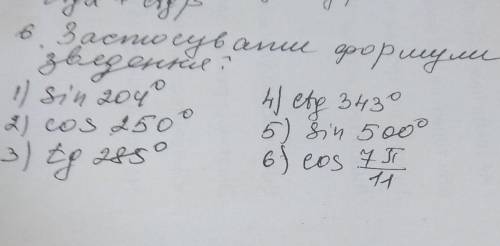 6. Застосувати формули
зведення:
1) sin 204°
2) cos 250°
3) tg 285°
4) ctg 343°
5) sin 500°
6) cos 7π/11